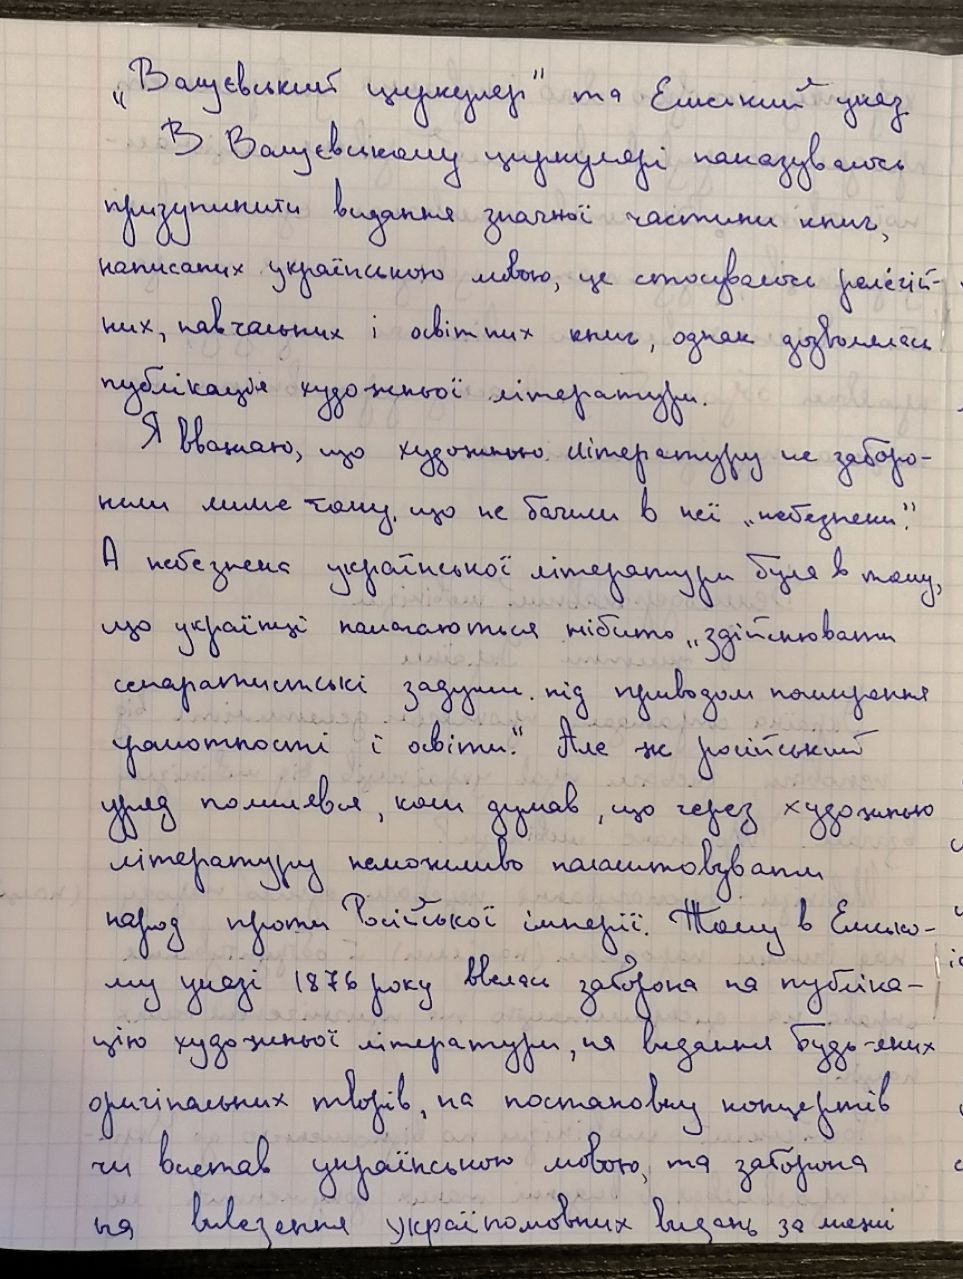 „Валуєвський циркуляр" та Емський указ
В Валуєвському циркулярі наказувалось
призупинити видання значної частини книг,
написаних українською мовою, це стосувалось релегій-
них, навчальних і освітніх книг, однак дозволялась
публікація художньої літератури.
Я вважаю, що художню літературу не заборо-
нили лише тому, що не бачили в неї „небезпеки".
А небезпека української літератури була в тому,
що українці намагаються нібито „здійснювати
сепаратистські задуми під приводом поширення
грамотності і освіти". Але ж російський
уряд помилявся, коли думав, що через художню
літературу неможливо налаштовувати
народ проти Російської імперії. Тому в Емсько-
му указі 1876 року ввелась заборона на публіка-
цію художньої літератури, на видання будь-яких
оригінальних творів, на постановку концертів
чи вистав українською мовою, та заборона
на вивезення україномовних видань за межі